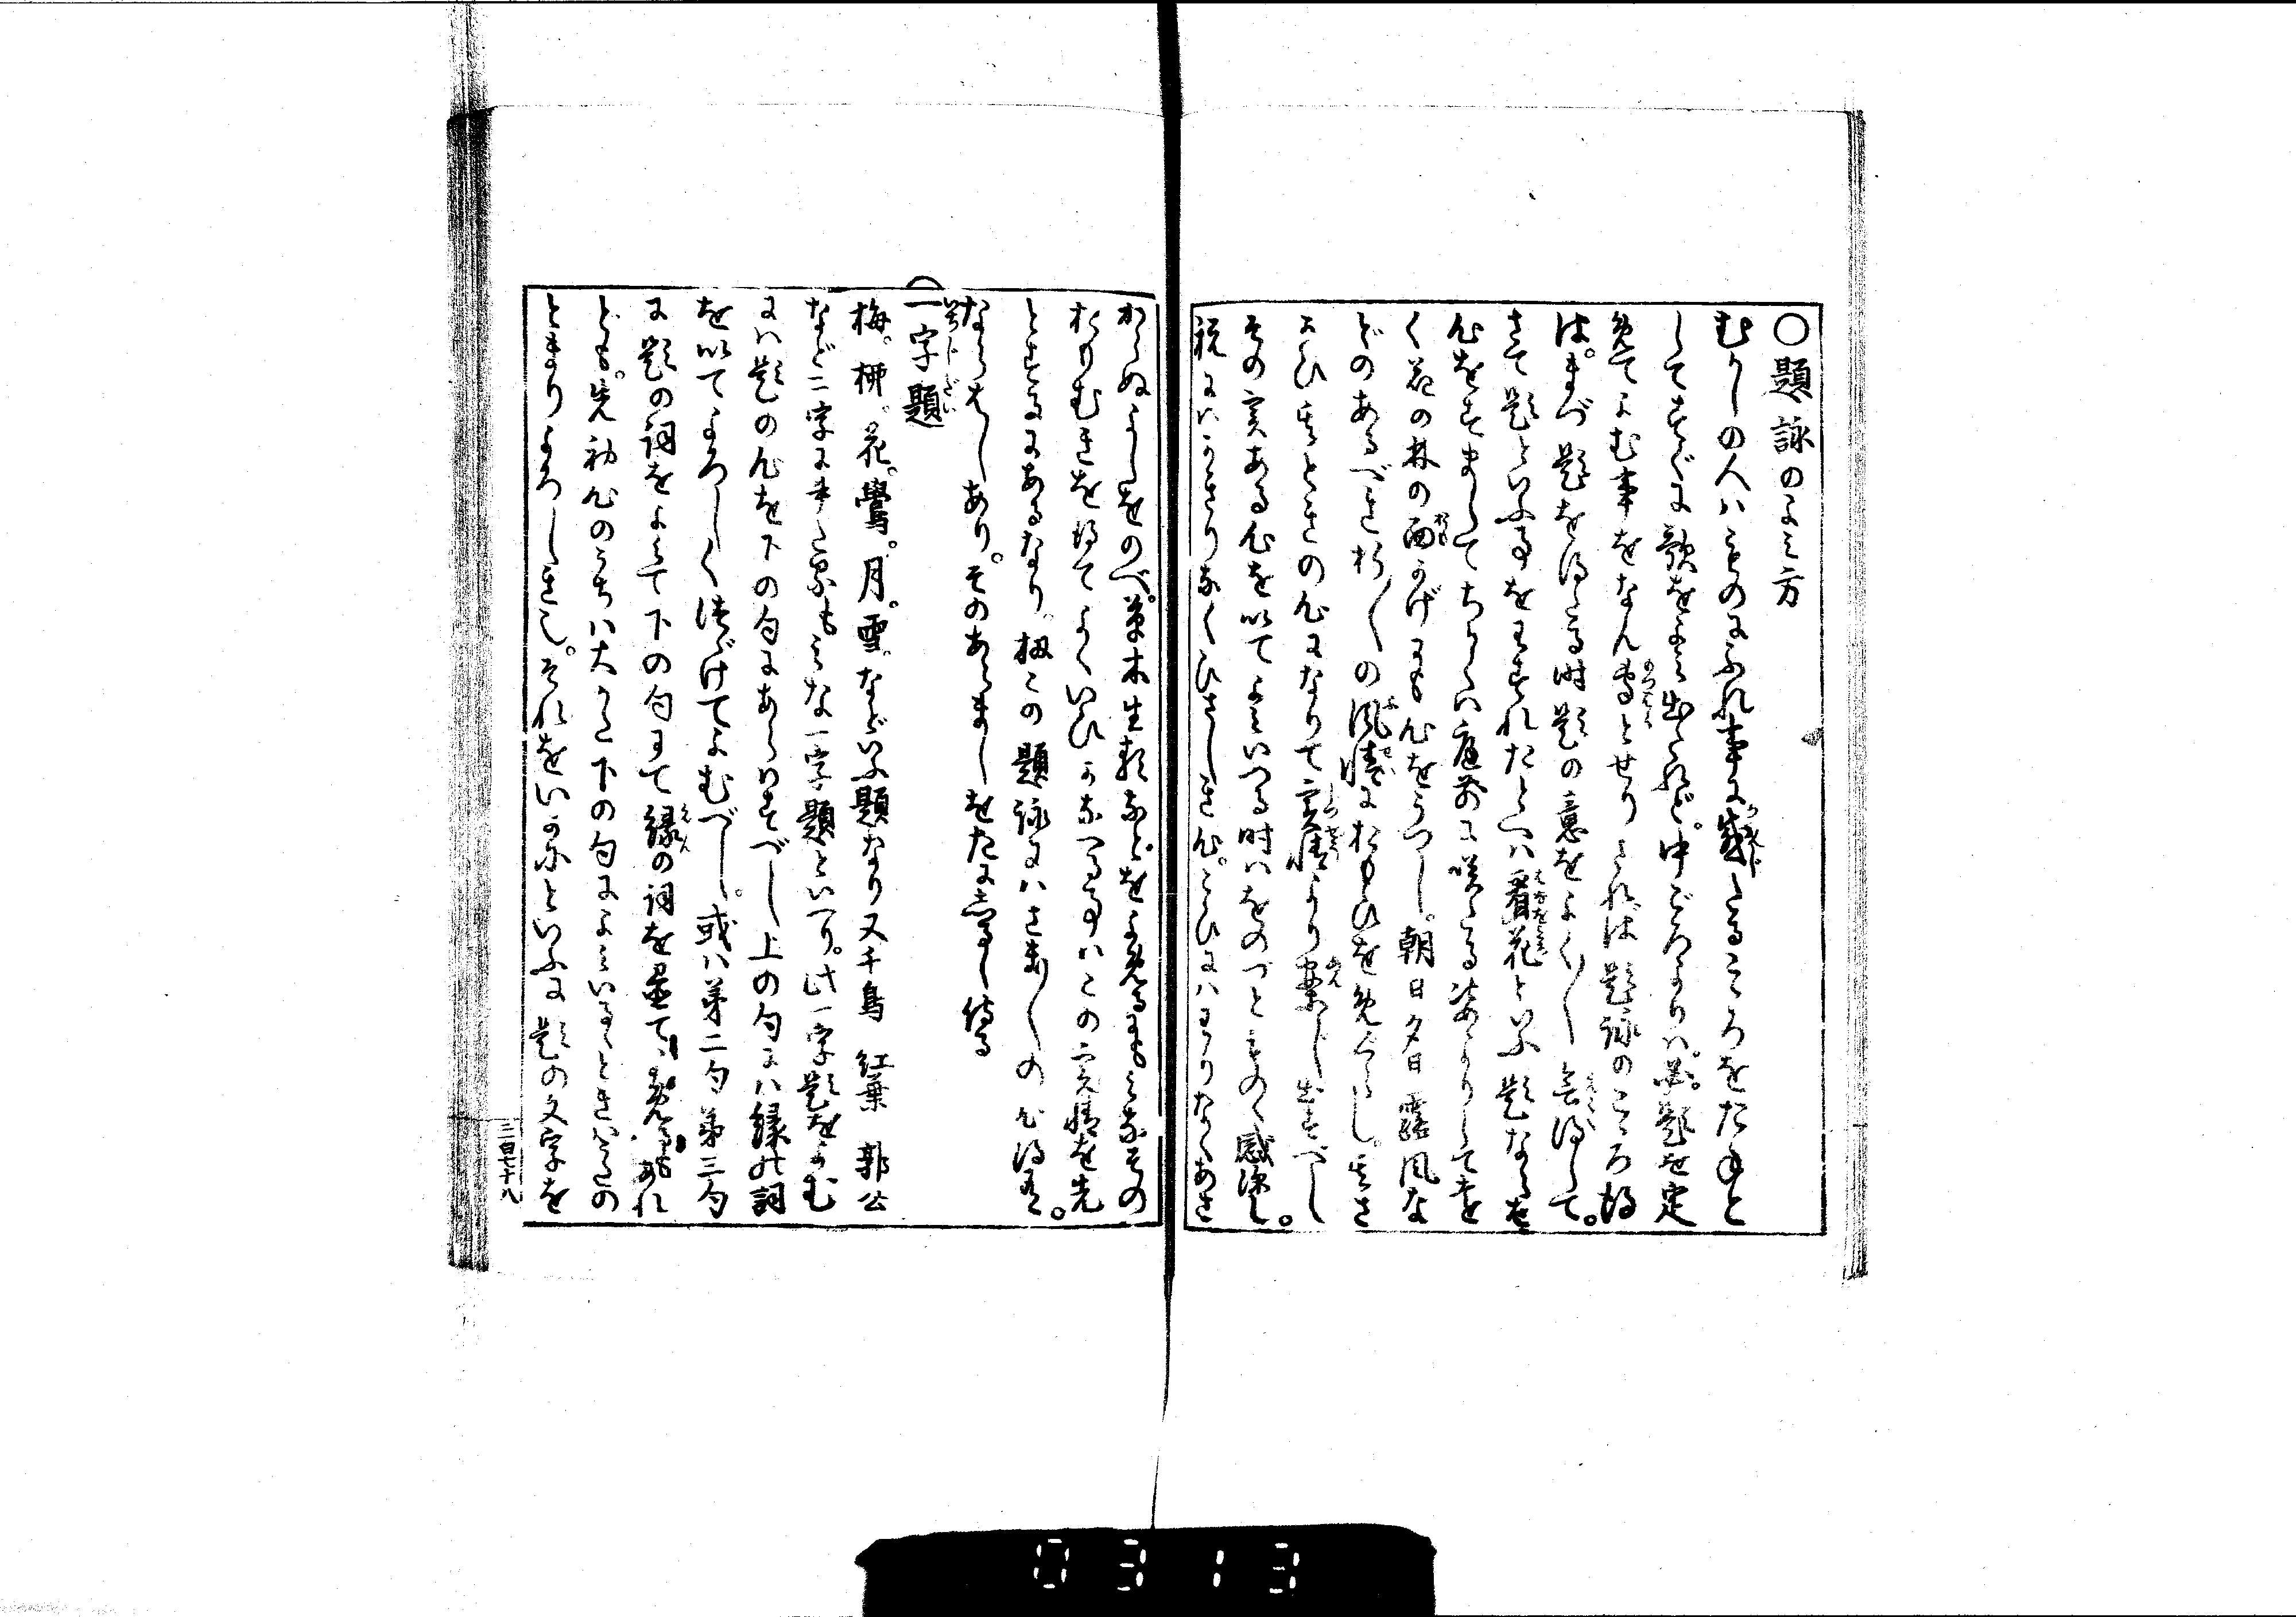 〇題詠のよみ方
むかしの人ハものにふれ事に感じたるこゝろをたねと
してすぐに歌をよみ出くれど。中ごろよりハ。兼題を定
めてよむ事をなん専とせり されば題詠のこゝろ得
は。まづ題を得たる時題の意をよく〳〵会得して。
さて題といふ事をわすれたとへハ看花といふ題ならば
心をすまして ちかくハ庭前に咲たる姿 とりしてとを
く花の林の面かげにも心をうつし。朝日夕日露風な
どのあるべき折〳〵の風情におもひをめぐらし。まさ
にひまときの心になりて実情より案じ出すべし
その実ある心を以てよみいづる時ハをのづともの感深し。
祝にハかぎりなくひさしき心。こひにハわりなくあさ
からぬよしをのべ。草木生類などをよめるにも。みなその
おもむきを得てよくいひかなへる事ハこの実情を先
とするにあるなり。扨この題詠にハさま〴〵の心得有。
ならはしあり。そのあらましをたにしるし侍る
一字題
梅。柳。花。鶯。月。雪。などいふ題なり又千鳥 紅葉 郭公
など二字にかきたるもみな一字題といへり。此一字題をよむ
にハ題の心を下の句にあらはすべし上の句にハ縁の詞
を以てよろしくつゞけてよむべし。或ハ第二句第三句
に題の詞をよみて下の句にて縁の詞を以て、よめるもあれ
ども。先初心のうちハ大かた下の句によみいるゝときハうたの
とまりよろしき也。それをいかにといふに題の文字を
三百七十八
0313